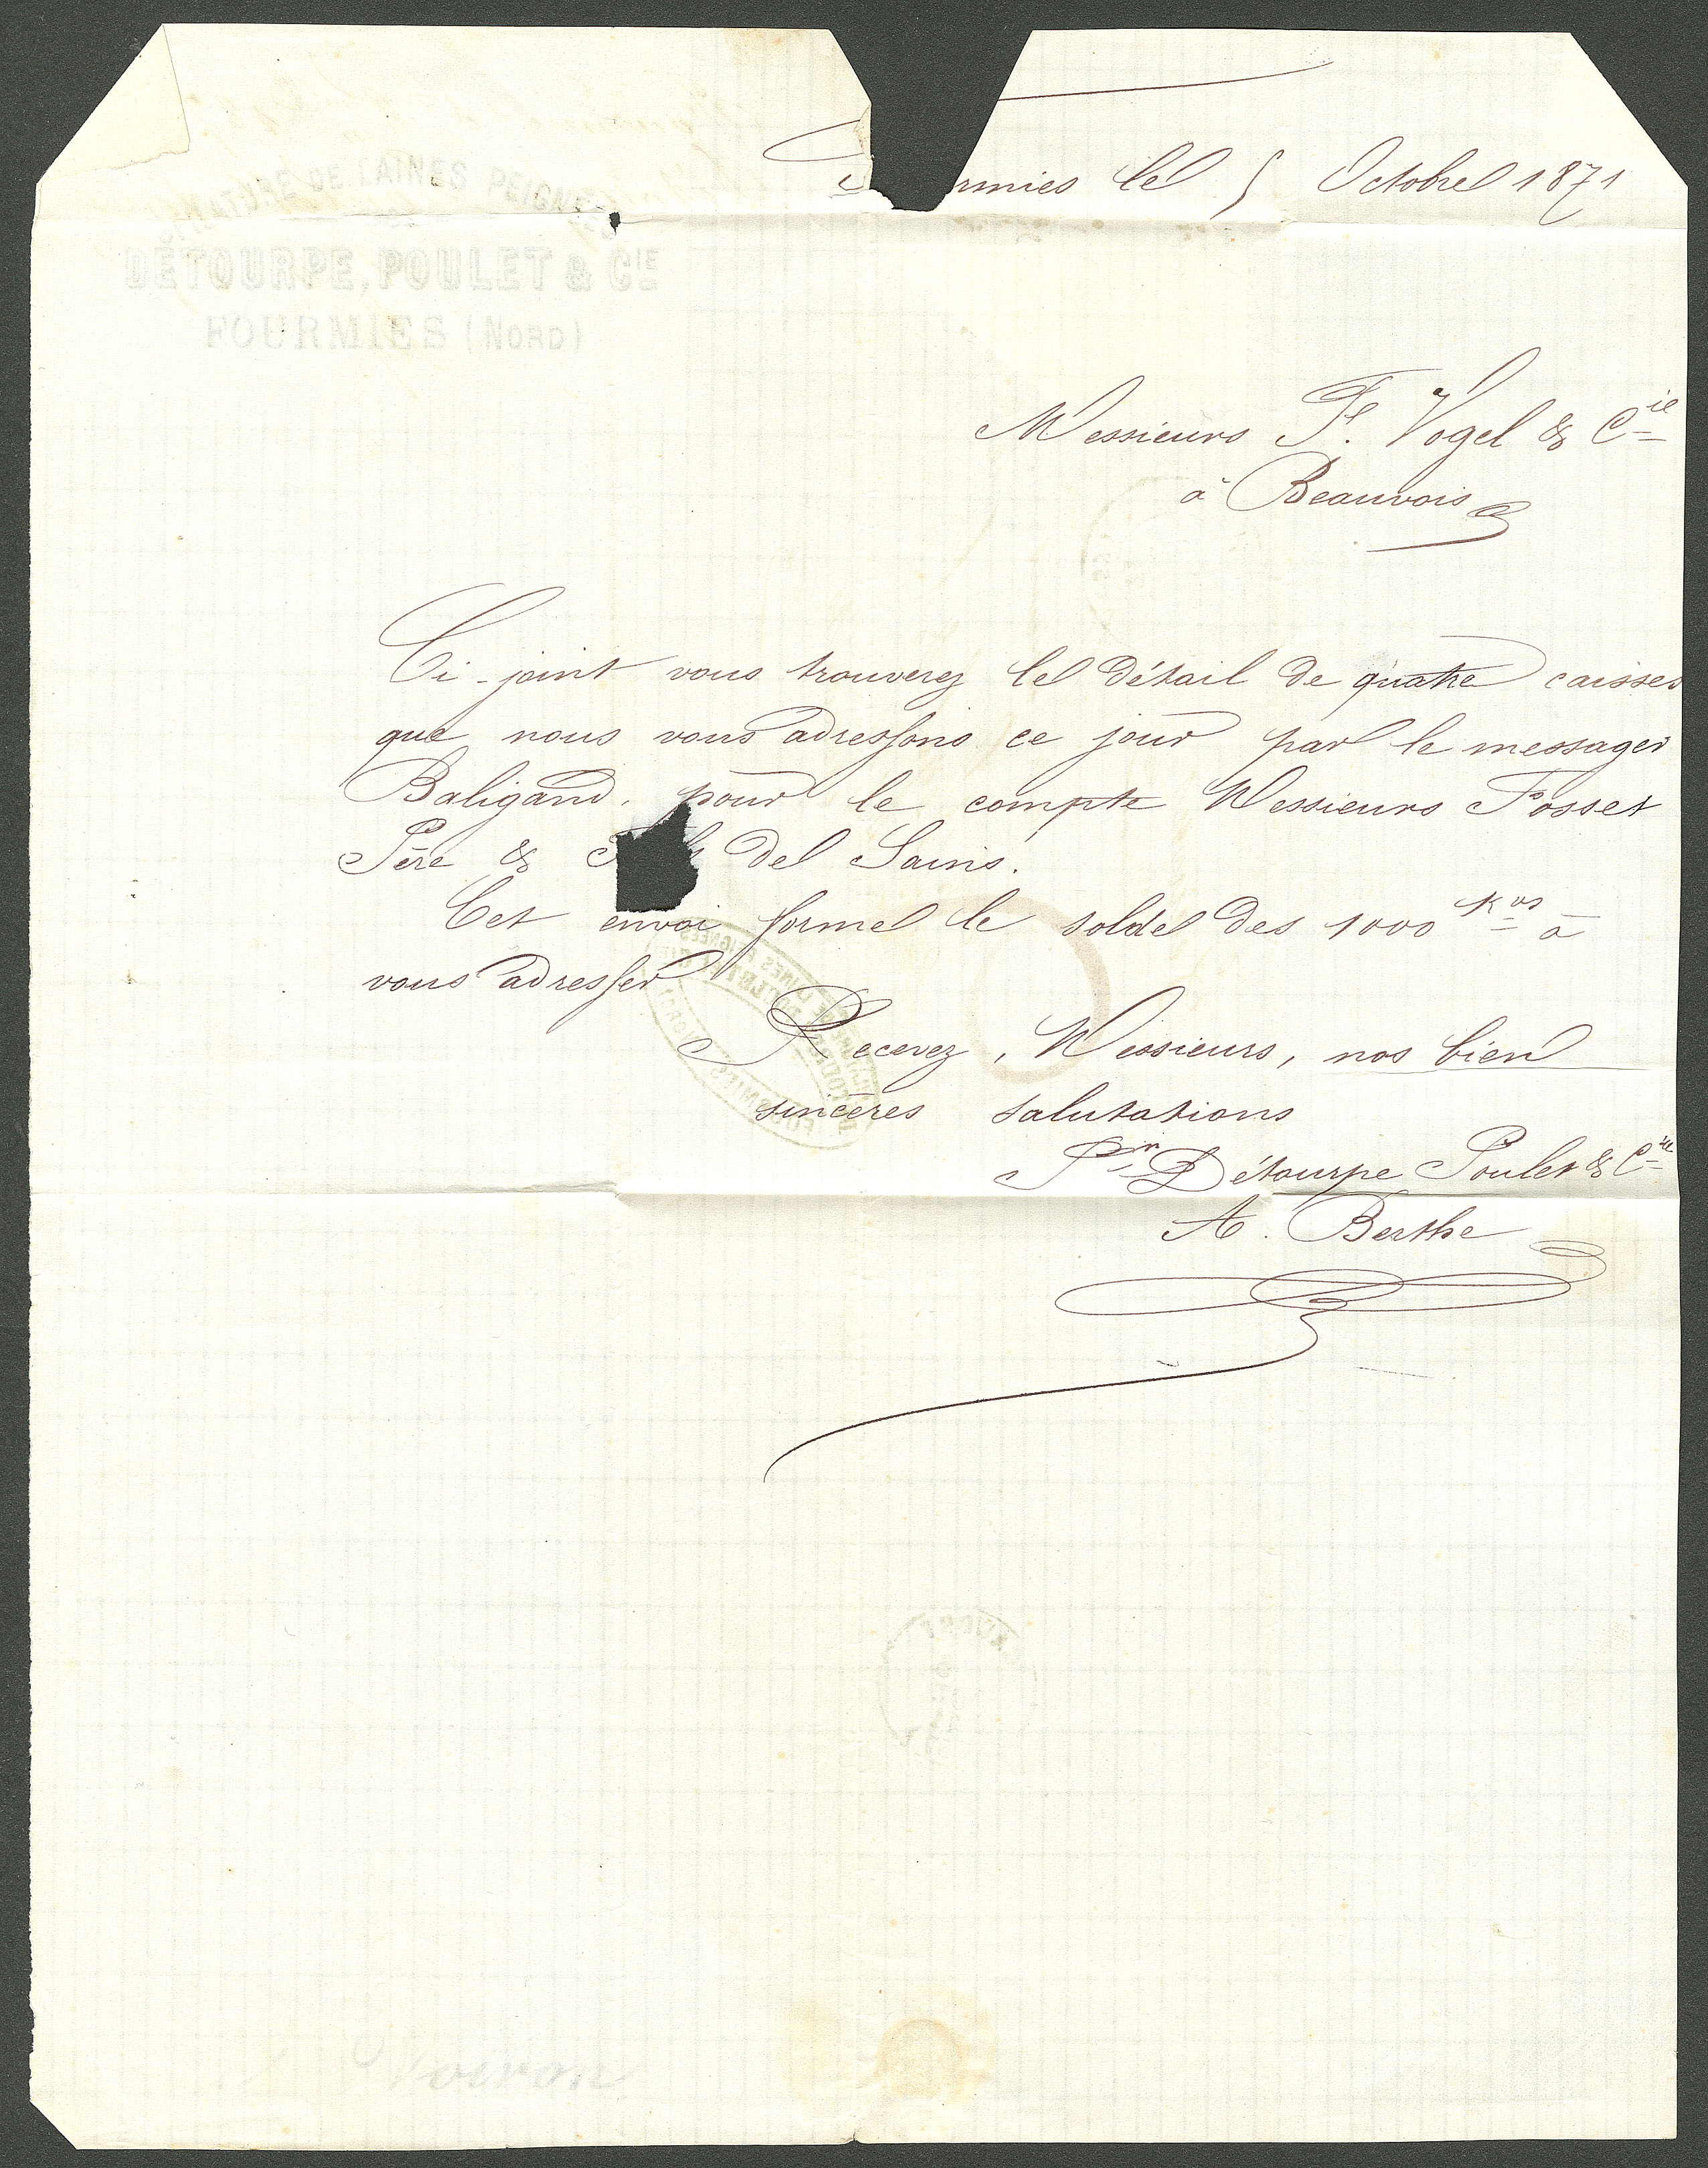 FILATURE DE LAINES PEIGNÉES
DÉTOURPE, POULET & CIE
FOURMIES (NORD)
rmies le 5 Octobre 1871
Messieurs F. Vogel & Cie
à Beauvois
Ci-joint vous trouverez le détail de quatre caisses
que nous vous adressons ce jour par le messager
Baligand, pour le compte Messieurs Fosset
Père & de Sains.
Cet envoi forme le solde des 1000 Kos à
vous adresser
Recevez, Messieurs, nos bien
sincères salutations
Pr Détourpe Poulet & Cie
A. Berthe